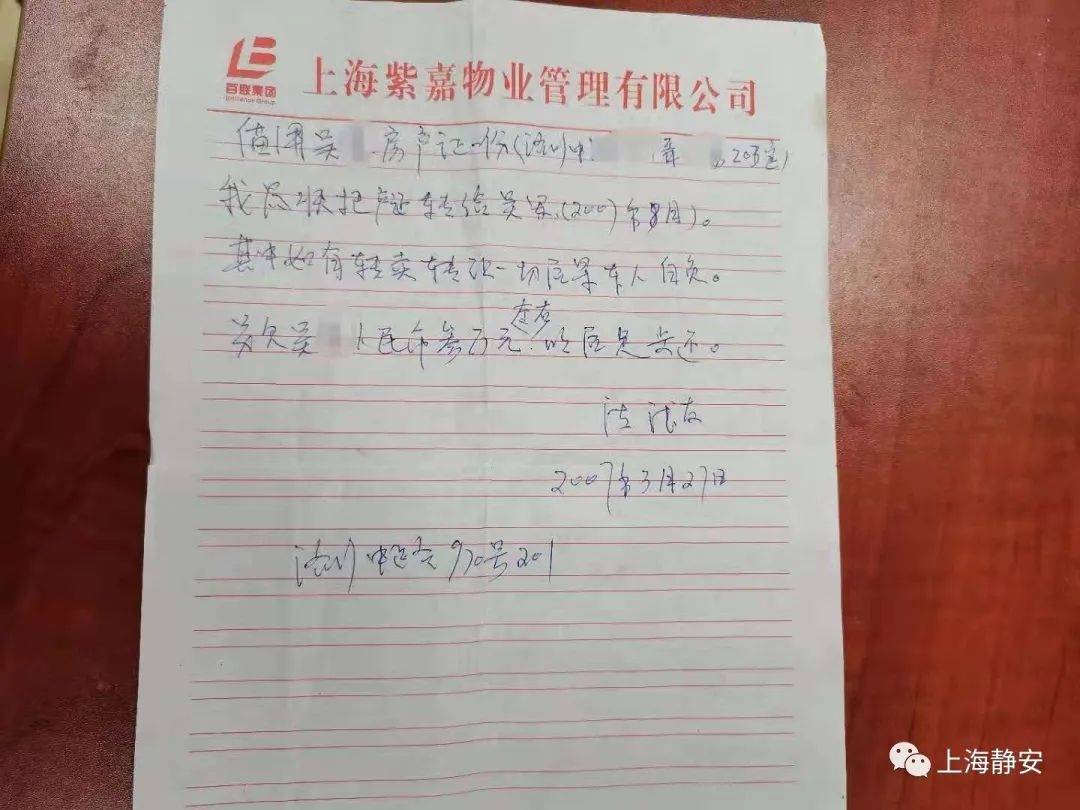 百联集团
上海紫嘉物业管理有限公司
借用吴 房产证一份(洛川中 弄 203室)
我尽快把产证转给吴 (2007年8月)。
其中如有转卖转 一切后果本人自负。
另欠吴 人民币叁万元 左右 尽 归还。
2007年3月27日
洛川中路 970号201
上海静安